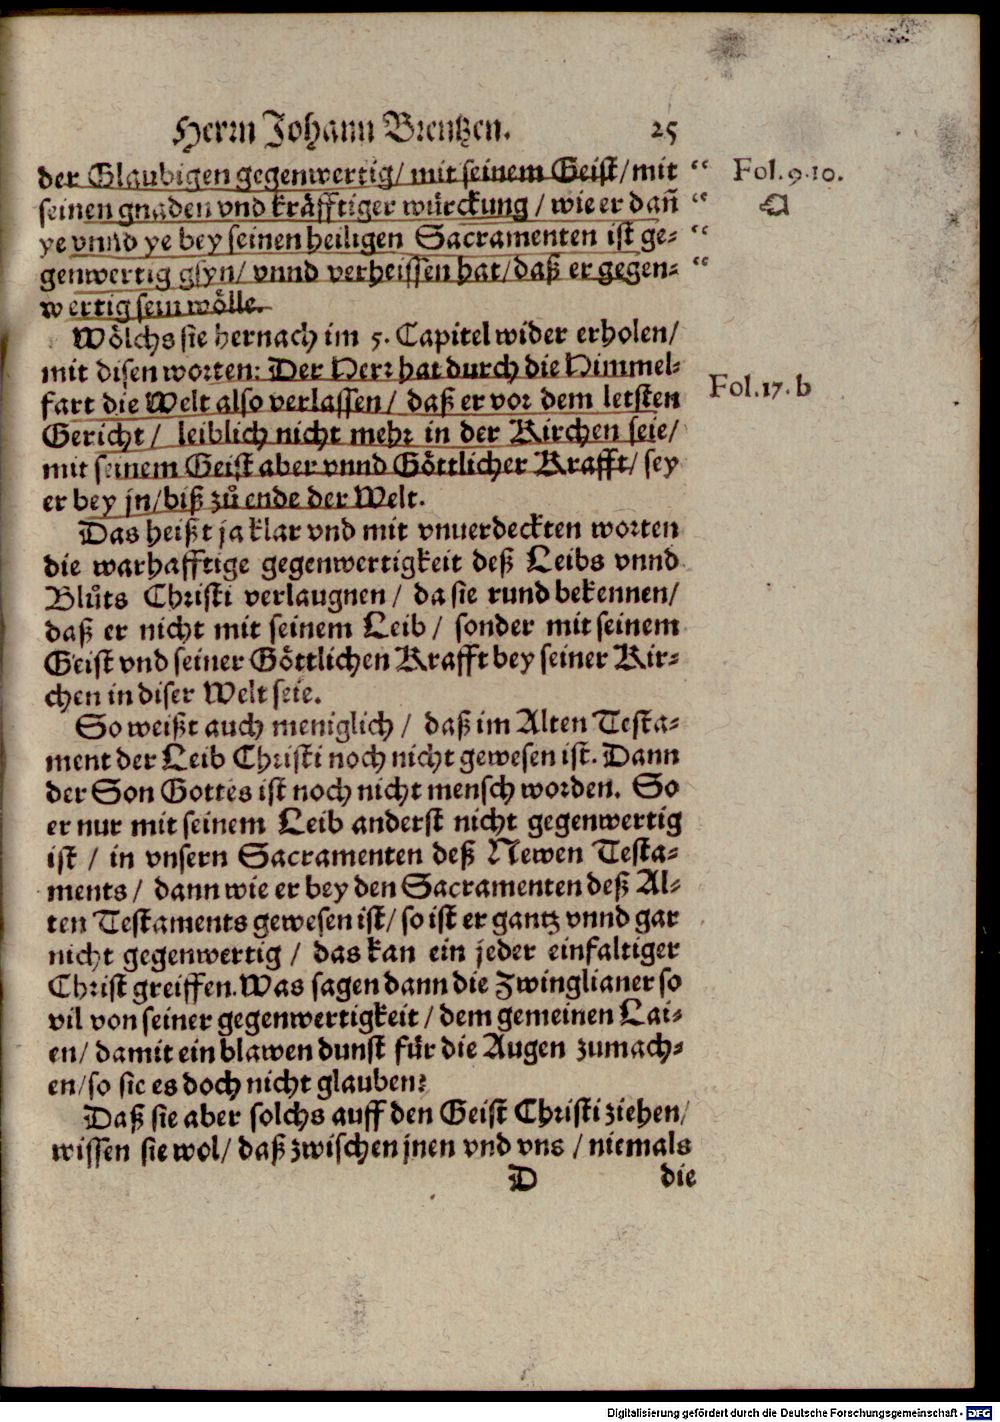 Herrn Johann Brentzen. 25
der Glaubigen gegenwertig/ mit seinem Geist/ mit “ Fol. 9. 10.
seinen gnaden vnd kräfftiger würckung / wie er dañ “
ye vnnd ye bey seinen heiligen Sacramenten ist ge- “
genwertig gsyn/ vnnd verheissen hat/ daß er gegen- “
wertig sein wölle.
Wölchs sie hernach im 5. Capitel wider erholen/
mit disen worten: Der Herr hat durch die Himmel- Fol. 17. b
fart die Welt also verlassen/ daß er vor dem letsten
Gericht/ leiblich nicht mehr in der Kirchen seie/
mit seinem Geist aber vnnd Göttlicher Krafft/ sey
er bey jn/ biß zů ende der Welt.
Das heißt ja klar vnd mit vnuerdeckten worten
die warhafftige gegenwertigkeit deß Leibs vnnd
Blůts Christi verlaugnen/ da sie rund bekennen/
daß er nicht mit seinem Leib / sonder mit seinem
Geist vnd seiner Göttlichen Krafft bey seiner Kir-
chen in diser Welt seie.
So weißt auch meniglich / daß im Alten Testa-
ment der Leib Christi noch nicht gewesen ist. Dann
der Son Gottes ist noch nicht mensch worden. So
er nur mit seinem Leib anderst nicht gegenwertig
ist / in vnsern Sacramenten deß Newen Testa-
ments/ dann wie er bey den Sacramenten deß Al-
ten Testaments gewesen ist/ so ist er gantz vnnd gar
nicht gegenwertig / das kan ein jeder einfaltiger
Christ greiffen. Was sagen dann die Zwinglianer so
vil von seiner gegenwertigkeit / dem gemeinen Lai-
en/ damit ein blawen dunst für die Augen zumach-
en/ so sie es doch nicht glauben?
Daß sie aber solchs auff den Geist Christi ziehen/
wissen sie wol/ daß zwischen jnen vnd vns / niemals
D die
Digitalisierung gefördert durch die Deutsche Forschungsgemeinschaft - DFG